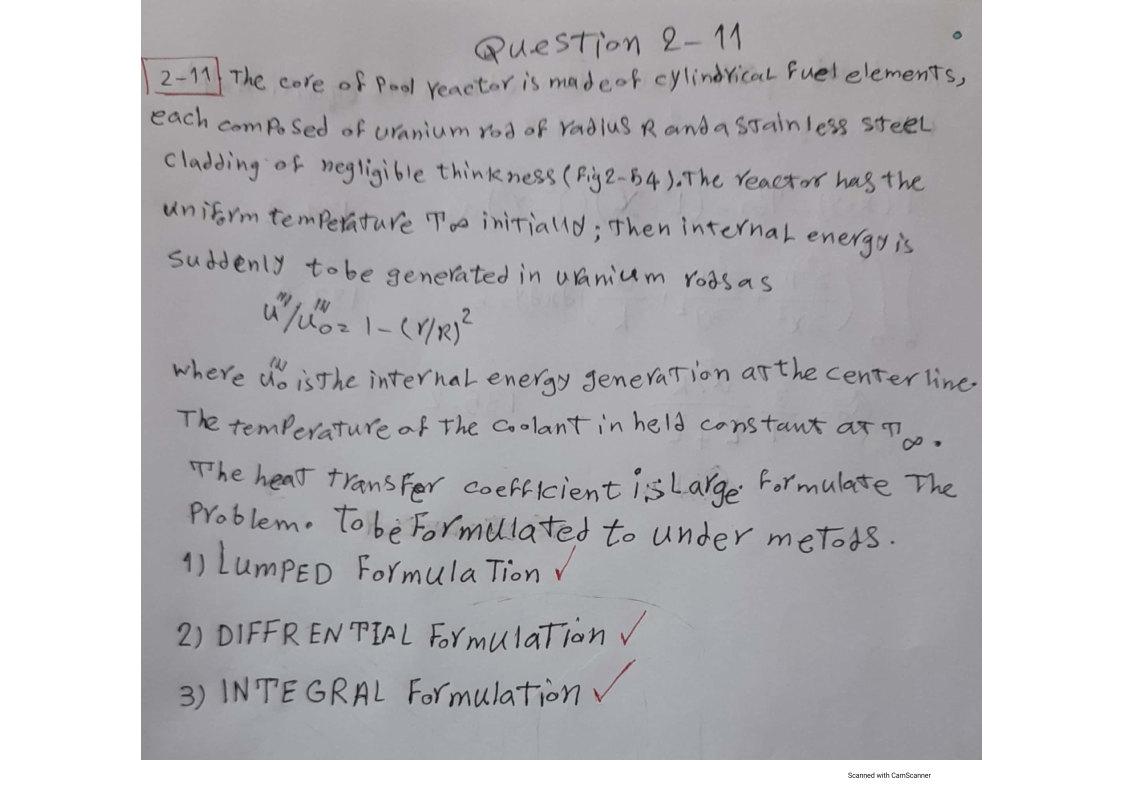 Question 2-11
2-11 The core of Pool reactor is made of cylindrical fuel elements,
each composed of uranium rod of radius R and a stainless steel
cladding of negligible thinkness (Fig 2-54). The reactor has the
uniform temperature T∞ initially; then internal energy is
suddenly to be generated in uranium rods as
u'''/u'''₀ = 1-(r/R)²
where u'''₀ is the internal energy generation at the center line.
The temperature of the coolant in held constant at T∞.
The heat transfer coefficient is Large. Formulate The
Problem. To be Formulated to under metods.
1) LUMPED Formulation ✓
2) DIFFRENTIAL Formulation ✓
3) INTEGRAL Formulation ✓
Scanned with CamScanner